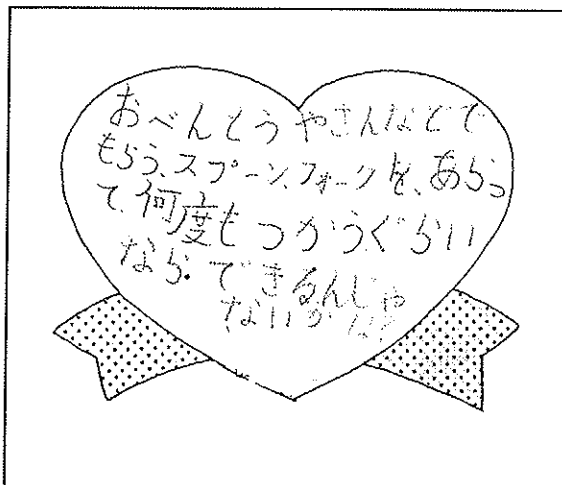 おべんとうやさんなどで
もらう、スプーン、フォークを、あらっ
て、何度もつかうぐらい
なら、できるんじゃ
ないかな